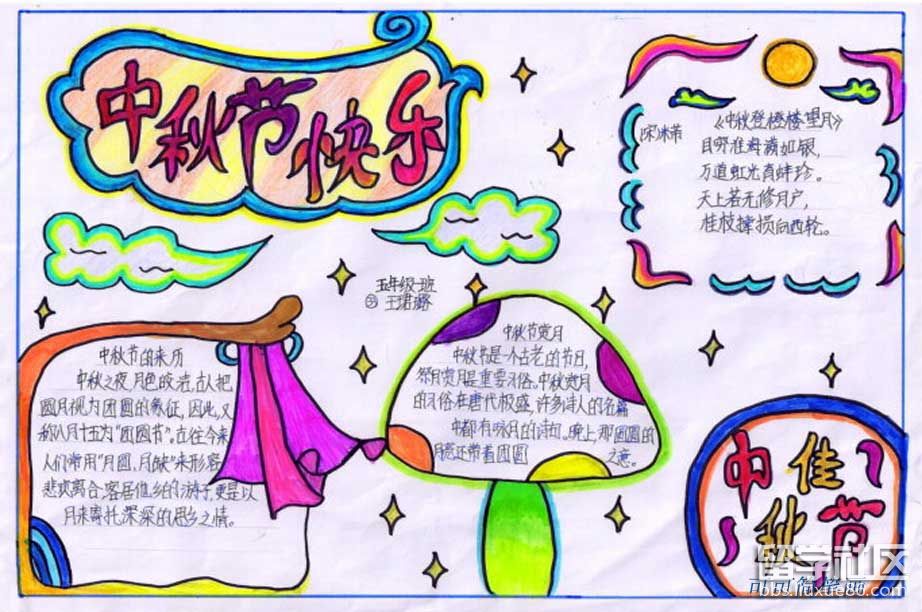 中秋节快乐
《中秋登楼望月》
宋·米芾
目穷淮海满如银，
万道虹光育蚌珍。
天上若无修月户，
桂枝撑损向西轮。
五年级一班
王珺
中秋节的来历
中秋之夜，月色皎洁，古人把
圆月视为团圆的象征，因此，又
称八月十五为“团圆节”。古往今来，
人们常用“月圆、月缺”来形容
悲欢离合，客居他乡的游子，更是以
月来寄托深深的思乡之情。
中秋节赏月
中秋节是一个古老的节日，
祭月赏月是重要习俗。中秋赏月
的习俗在唐代极盛，许多诗人的名篇
中都有咏月的诗句。晚上，那圆圆的
月亮还带着团圆之意。
中秋佳节
留学社区
bbs.liuxue86.com